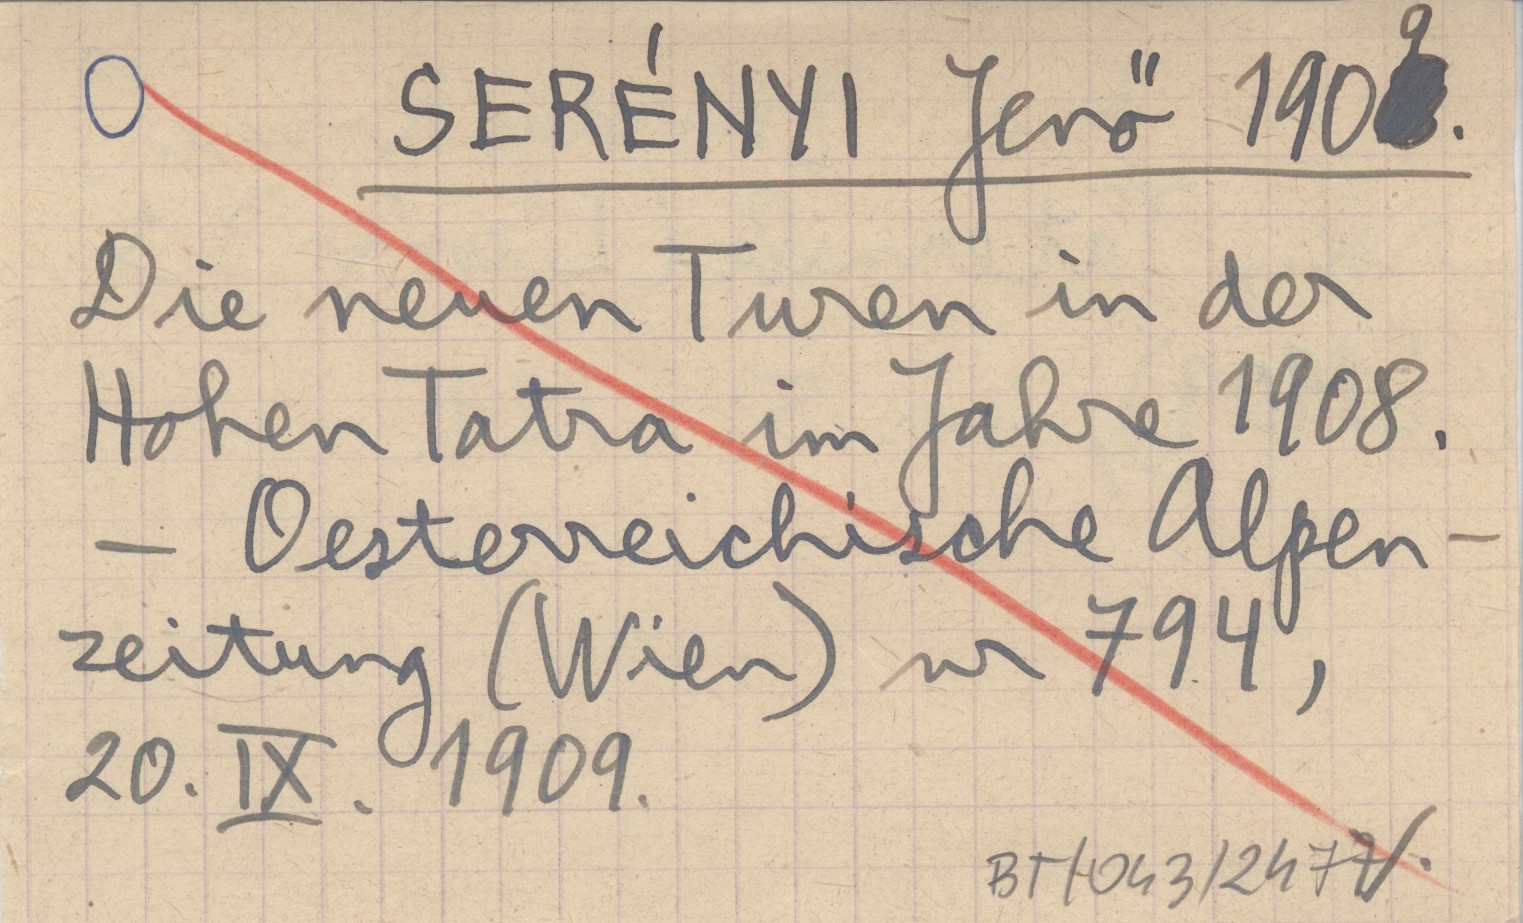 O SERÉNYI Jenő 1909.
Die neuen Turen in der
Hohen Tatra im Jahre 1908.
— Oesterreichische Alpen-
zeitung (Wien) nr 794,
20. IX. 1909.
BT/043/2477/.